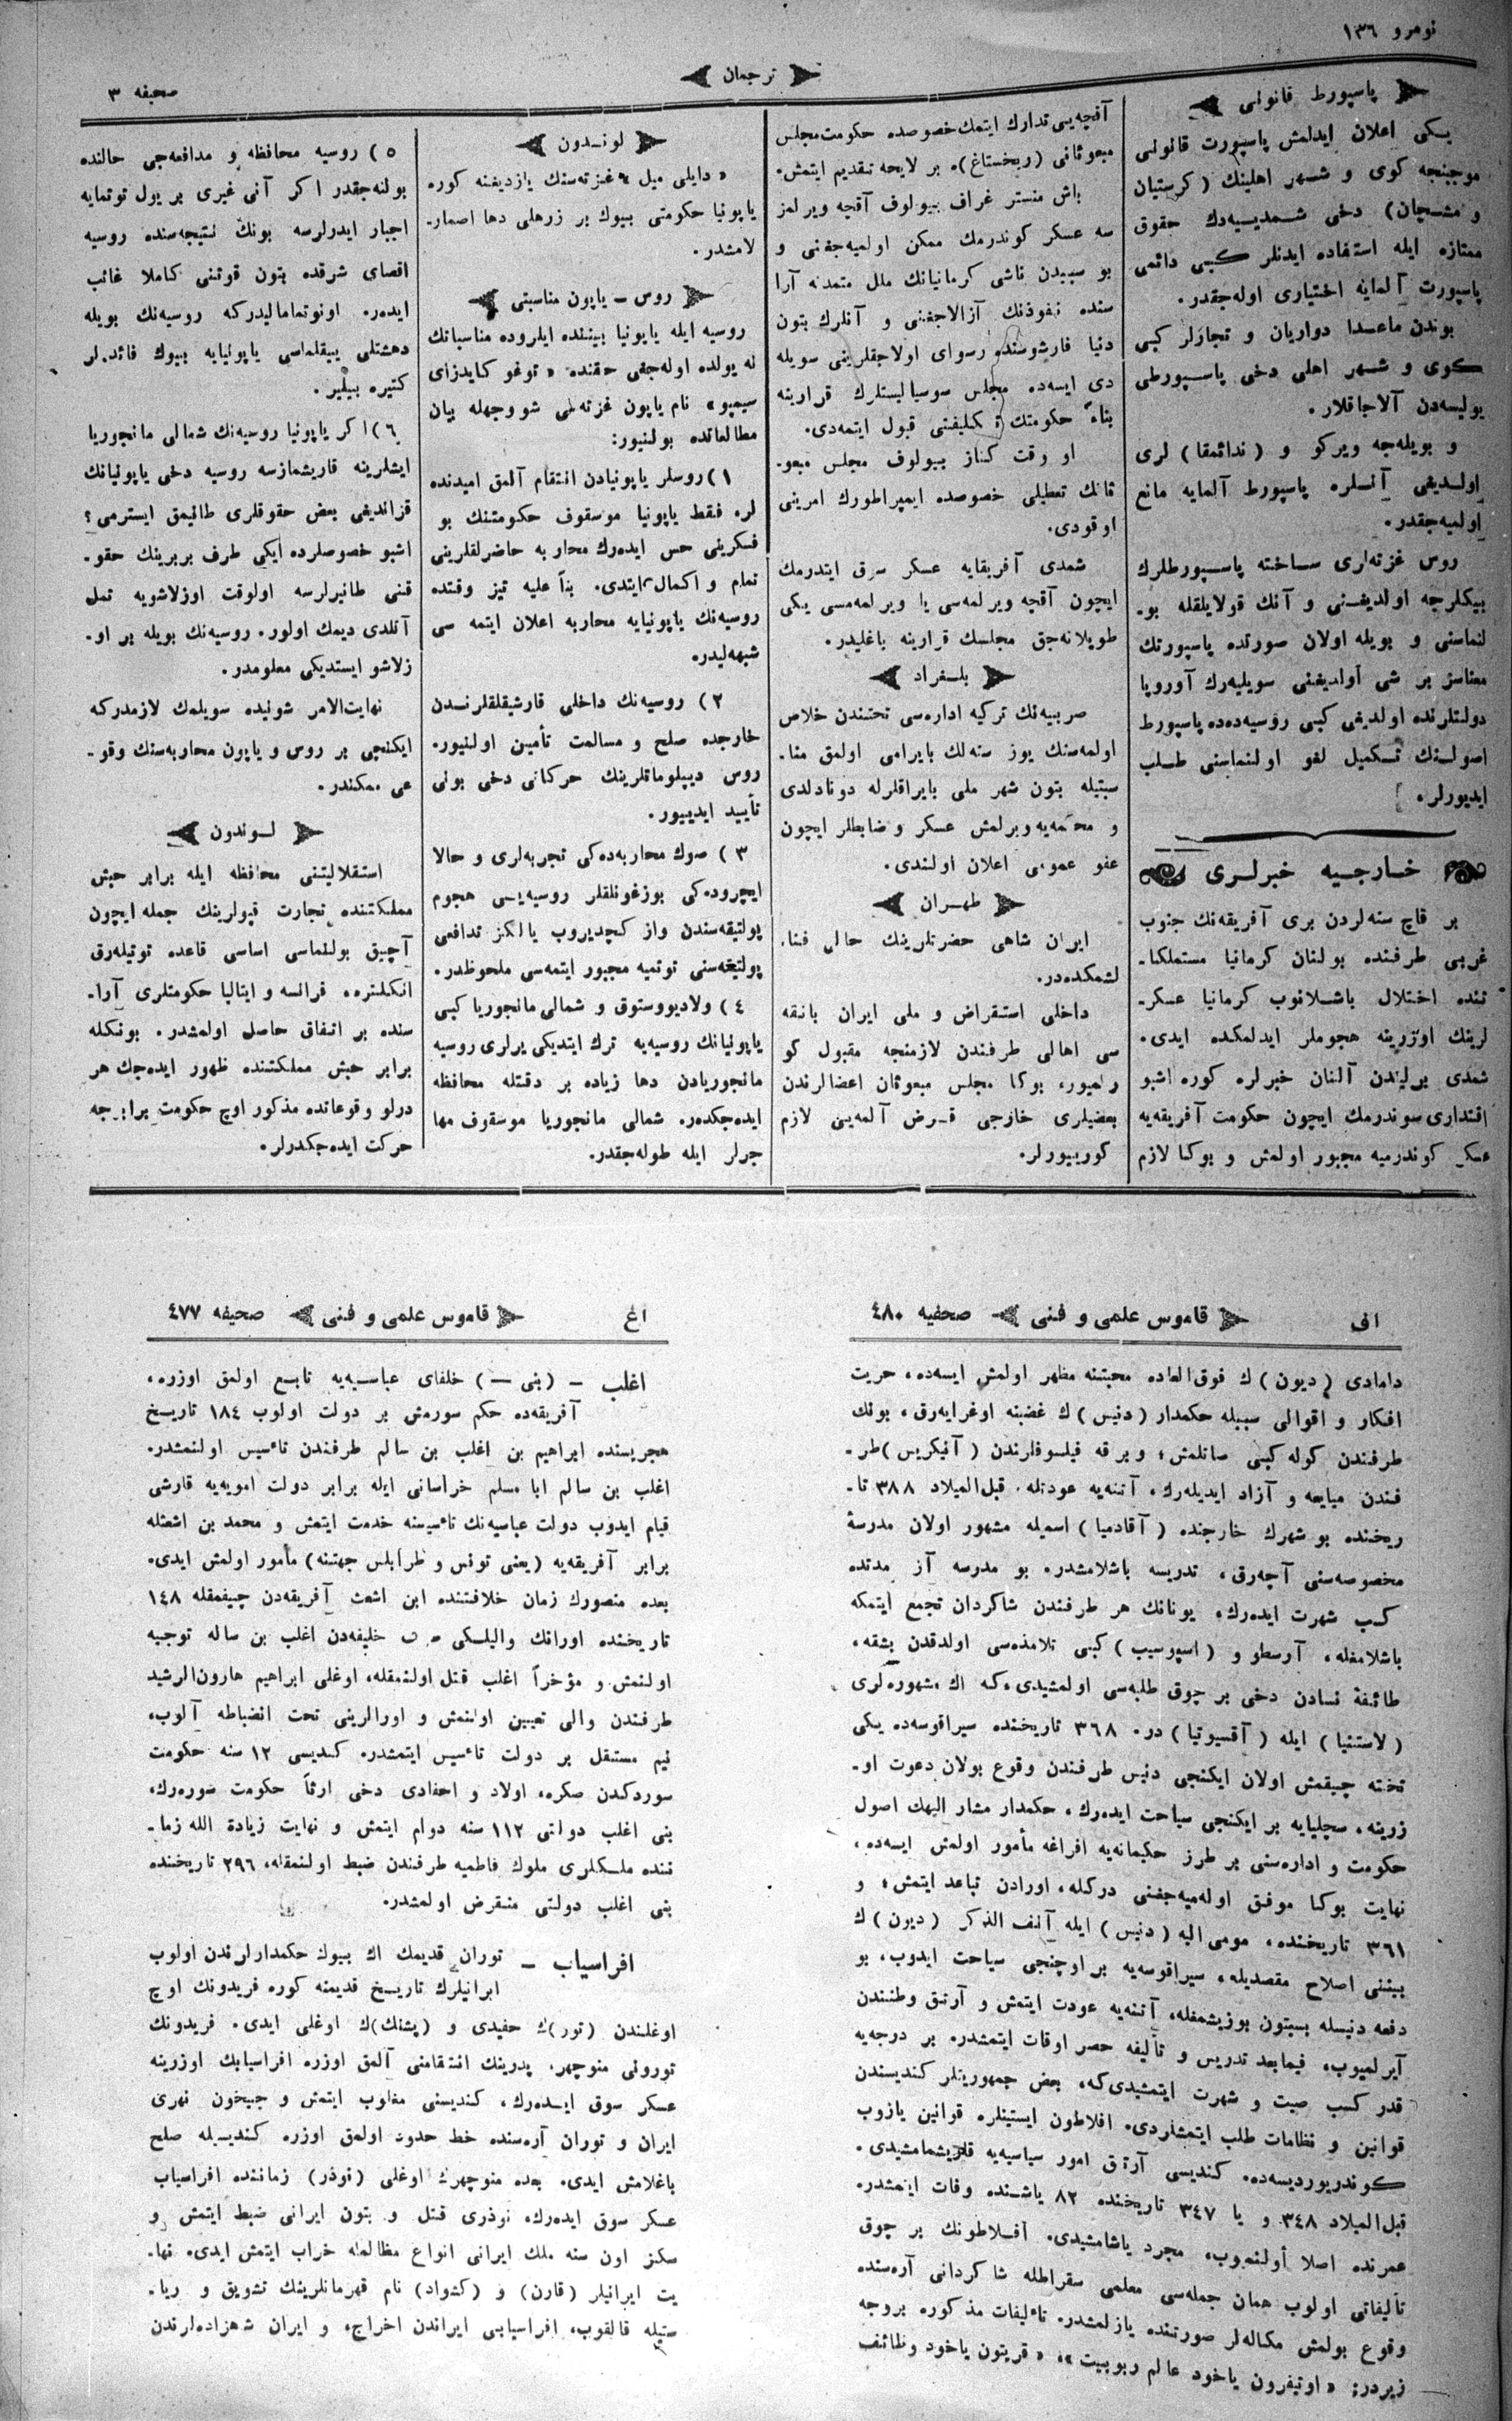 نومرو ١٣٦
ترجمان
صحيفه ٣
پاسپورط قانونى
يكى اعلان ايدلمش پاسپورت قانونى
موجبنجه كوى و شهر اهلينك (كرستيان
و مشچان) دخى شمديسيه‌دك حقوق
ممتازه ايله استفاده ايدنلر كبى دائمى
پاسپورت آلمايه اختيارى اوله‌جقدر.
بوندن ماعدا دواريان و تجارلر كبى
كوى و شهر اهلى دخى پاسپورطى
پوليسه‌دن آلاجاقلار.
و بويله‌جه ويركو و (ندائمقا) لرى
اولديغى آنسلره پاسپورط آلمايه مانع
اولميه‌جقدر.
روس غزته‌لرى ساخته پاسپورطلرك
بيكلرجه اولديغنى و آنك قولايلقله بو-
لنماسنى و بويله اولان صورتده پاسپورتك
معناسز بر شى اولديغنى سويليه‌رك آوروپا
دولتلرنده اولديغى كبى روسيه‌ده‌ده پاسپورط
اصولنك تكميل لغو اولنماسنى طلب
ايديورلر.
خارجيه خبرلرى
بر قاچ سنه‌لردن برى آفريقه‌نك جنوب
غربى طرفنده بولنان كرمانيا مستملكا-
تنده اختلال باشلانوب كرمانيا عسكر-
لرينك اوزرينه هجوملر ايدلمكده ايدى.
شمدى برليندن آلنان خبرلره كوره اشبو
اقتدارى سوندرمك ايچون حكومت آفريقه‌يه
عسكر كوندرميه مجبور اولمش و بوكا لازم
آقچه‌يى تدارك ايتمك خصوصده حكومت مجلس
مبعوثانى (ريخستاغ)ه بر لايحه تقديم ايتمش.
باش منستر غراف بيولوف آقچه ويرلمز
سه عسكر كوندرمك ممكن اولميه‌جغنى و
بو سببدن ناشى كرمانيانك ملل متمدنه آرا
سنده نفوذنك آزالاجغنى و آنلرك بتون
دنيا قارشوسنده رسواى اولاجقلرينى سويله
دى ايسه‌ده مجلس سوسياليستلرك قرارينه
بناءً حكومتك تكليفنى قبول ايتمه‌دى.
او وقت كناز بيولوف مجلس مبعو-
ثانك تعطيلى خصوصده ايمپراطورك امرينى
اوقودى.
شمدى آفريقايه عسكر سوق ايتدرمك
ايچون آقچه ويرلمه‌سى يا ويرلمه‌مسى يكى
طوپلانه‌جق مجلسك قرارينه باغليدر.
بلغراد
صربيه‌نك تركيه اداره‌سى تحتندن خلاص
اولمه‌سنك يوز سنه‌لك بايرامى اولمق منا-
سبتيله بتون شهر ملى بايراقلرله دونادلدى
و محكمه‌يه ويرلمش عسكر و ضابطلر ايچون
عفو عمومى اعلان اولندى.
طهران
ايران شاهى حضرتلرينك حالى فنا-
لشمكده‌در.
داخلى استقراض و ملى ايران بانقه
سى اهالى طرفندن لازمنجه مقبول كو
رلميور. بوكا مجلس مبعوثان اعضالرندن
بعضيلرى خارجى قرض آلمه‌يى لازم
كوريبورلر.
لوندون
«دايلى ميل» غزته‌سنك يازديغنه كوره
ياپونيا حكومتى بيوك بر زرهلى دها اصمار-
لامشدر.
روس – ياپون مناسبتى
روسيه ايله ياپونيا بيننده ايلروده مناسباتك
نه يولده اوله‌جغى حقنده «توغو كايدزاى
سيمپو» نام ياپون غزته‌سى شو وجهله بيان
مطالعاتده بولنيور:
١) روسلر ياپونيادن انتقام آلمق اميدنده
لر. فقط ياپونيا موسقوف حكومتنك بو
فكرينى حس ايده‌رك محاربه حاضرلقلرينى
تمام و اكمال ايتدى. بناً عليه تيز وقتده
روسيه‌نك ياپونيايه محاربه اعلان ايتمه سى
شبهه‌ليدر.
٢) روسيه‌نك داخلى قارشيقلقلرندن
خارجده صلح و مسالمت تأمين اولنيور.
روس ديپلوماتلرينك حركاتى دخى بونى
تأييد ايدييور.
٣) صوك محاربه‌ده‌كى تجربه‌لرى و حالا
ايچروده‌كى بوزغونلقلر روسيه‌يى هجوم
پولتيقه‌سندن واز كچديروب يالكز تدافعى
پولتيقه‌سنى توتميه مجبور ايتمه‌سى ملحوظدر.
٤) ولاديووستوق و شمالى مانجوريا كبى
ياپونيانك روسيه‌يه ترك ايتديكى يرلرى روسيه
مانجوريادن دها زياده بر دقتله محافظه
ايده‌جكده‌ر. شمالى مانجوريا موسقوف مها
جرلر ايله طوله‌جقدر.
٥) روسيه محافظه و مدافعه‌جى حالنده
بولنه‌جقدر اكر آنى غيرى بر يول توتمايه
اجبار ايدرلرسه بونك نتيجه‌سنده روسيه
اقصاى شرقده بتون قوتنى كاملا غائب
ايده‌ر. اونوتمامليدركه روسيه‌نك بويله
دهشتلى ييقلماسى ياپونيايه بيوك فائده‌لر
كتيره بيلير.
٦) اكر ياپونيا روسيه‌نك شمالى مانجوريا
ايشلرينه قاريشمازسه روسيه دخى ياپونيانك
قزانديغى بعض حقوقلرى طانيمق ايسترمى؟
اشبو خصوصلرده ايكى طرف بربرينك حقو-
قنى طانيرلرسه اولوقت اوزلاشويه تمل
آتلدى ديمك اولور. روسيه‌نك بويله بر او-
زلاشو ايستديكى معلومدر.
نهايت‌الامر شونيده سويلمك لازمدركه
ايكنجى بر روس و ياپون محاربه‌سنك وقو-
عى ممكندر.
لوندون
استقلاليتنى محافظه ايله برابر حبش
مملكتنده تجارت قپولرينك جمله ايچون
آچيق بولنماسى اساسى قاعده توتيله‌رق
انكلتره، فرانسه و ايتاليا حكومتلرى آرا-
سنده بر اتفاق حاصل اولمشدر. بونكله
برابر حبش مملكتنده ظهور ايده‌جك هر
درلو وقوعاتده مذكور اوچ حكومت برابرجه
حركت ايده‌جكدرلر.
افى
قاموس علمى و فنى
صحفيه ٤٨٠
دامادى (ديون)ك فوق‌العاده محبتنه مظهر اولمش ايسه‌ده، حريت
افكار و اقوالى سببله حكمدار (دنيس)ك غضبنه اوغرايه‌رق، بونك
طرفندن كوله كبى صاتلمش؛ وبرقه فيلسوفلرندن (آنيكريس) طر-
فندن مبايعه و آزاد ايديله‌رك، آتنه‌يه عودتله، قبل‌الميلاد ٣٨٨ تا-
ريخنده بو شهرك خارجنده (آقادميا) اسميله مشهور اولان مدرسهٔ
مخصوصه‌سنى آچه‌رق، تدريسه باشلامشدر. بو مدرسه آز مدتده
كسب شهرت ايده‌رك، يونانك هر طرفندن شاكردان تجمع ايتمكه
باشلامغله، آرسطو و (اسپوسيب) كبى تلامذه‌سى اولدقدن بشقه،
طائفهٔ نسادن دخى بر چوق طلبه‌سى اولمشيدى، كه اك مشهوره‌لرى
(لاستنيا) ايله (آقسيوتيا) در. ٣٦٨ تاريخنده سيراقوسه‌ده يكى
تخته چيقمش اولان ايكنجى دنيس طرفندن وقوع بولان دعوت او-
زرينه، سچليايه بر ايكنجى سياحت ايده‌رك، حكمدار مشار اليهك اصول
حكومت و اداره‌سنى بر طرز حكيمانه‌يه افراغه مأمور اولمش ايسه‌ده،
نهايت بوكا موفق اوله‌ميه‌جغنى دركله، اورادن تباعد ايتمش؛ و
٣٦١ تاريخنده، مومى اليه (دنيس) ايله آنف الذكر (ديون)ك
بيننى اصلاح مقصديله، سيراقوسه‌يه بر اوچنجى سياحت ايدوب، بو
دفعه دنيسله بسبتون بوزيشمغله، آتنه‌يه عودت ايتمش و آرتق وطنندن
آيرلميوب، فيمابعد تدريس و تأليفه حصر اوقات ايتمشدر. بر درجه‌يه
قدر كسب صيت و شهرت ايتمشيدى‌كه، بعض جمهوريتلر كنديسندن
قوانين و نظامات طلب ايتمشلردى. افلاطون ايستينلره قوانين يازوب
كوندريورديسه‌ده، كنديسى آرتق امور سياسيه‌يه قاريشمامشيدى.
قبل‌الميلاد ٣٤٨ و يا ٣٤٧ تاريخنده ٨٢ ياشنده وفات ايتمشدر.
عمرنده اصلا أولنميوب، مجرد ياشامشيدى. افلاطونك بر چوق
تأليفاتى اولوب همان جمله‌سى معلمى سقراطله شاكردانى آره‌سنده
وقوع بولمش مكالمه‌لر صورتنده يازلمشدر. تأليفات مذكوره بروجه
زيردر: «اوتيفرون ياخود عالم ربوبيت»، «قريتون ياخود وظائف
اغ
قاموس علمى و فنى
صحيفه ٤٧٧
اغلب – (بنى –) خلفاى عباسيه‌يه تابع اولمق اوزره،
آفريقه‌ده حكم سورمش بر دولت اولوب ١٨٤ تاريخ
هجريسنده ابراهيم بن اغلب بن سالم طرفندن تأسيس اولنمشدر.
اغلب بن سالم ابا مسلم خراسانى ايله برابر دولت امويه‌يه قارشى
قيام ايدوب دولت عباسيه‌نك تأسيسنه خدمت ايتمش و محمد بن اشعثله
برابر آفريقه‌يه (يعنى تونس و طرابلس جهتنه) مأمور اولمش ايدى.
بعده منصورك زمان خلافتنده ابن اشعث آفريقه‌دن چيقمقله ١٤٨
تاريخنده اورانك واليلكى خليفه‌دن اغلب بن ساله توجيه
اولنمش و مؤخراً اغلب قتل اولنمقله، اوغلى ابراهيم هارون‌الرشيد
طرفندن والى تعيين اولنمش و اورالرينى تحت انضباطه آلوب،
نيم مستقل بر دولت تأسيس ايتمشدر. كنديسى ١٢ سنه حكومت
سوردكدن صكره، اولاد و احفادى دخى ارثاً حكومت سوره‌رك،
بنى اغلب دولتى ١١٢ سنه دوام ايتمش و نهايت زيادة الله زما-
ننده ملكلرى ملوك فاطميه طرفندن ضبط اولنمقله، ٢٩٦ تاريخنده
بنى اغلب دولتى منقرض اولمشدر.
افراسياب – توران قديمك اك بيوك حكمدارلرندن اولوب
ايرانيلرك تاريخ قديمنه كوره فريدونك اوچ
اوغلندن (تور)ك حفيدى و (پشنك)ك اوغلى ايدى. فريدونك
تورونى منوچهر، پدرينك انتقامنى آلمق اوزره افراسيابك اوزرينه
عسكر سوق ايده‌رك، كنديسنى مغلوب ايتمش و جيحون نهرى
ايران و توران آره‌سنده خط حدود اولمق اوزره كنديسله صلح
باغلامش ايدى. بعده منوچهرك اوغلى (نوذر) زماننده افراسياب
عسكر سوق ايده‌رك، نوذرى قتل و بتون ايرانى ضبط ايتمش و
سكز اون سنه ملك ايرانى انواع مظالمله خراب ايتمش ايدى. نها-
يت ايرانيلر (قارن) و (كشواد) نام قهرمانلرينك تشويق و ريا-
ستيله قالقوب، افراسيابى ايراندن اخراج، و ايران شهزاده‌لرندن